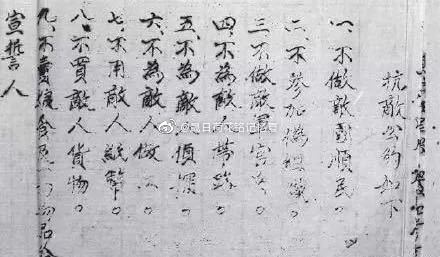 抗敵公約如下
一、不做敵國順民。
二、不參加偽組織。
三、不做敵軍官兵。
四、不為敵人帶路。
五、不為敵人偵探。
六、不為敵人做工。
七、不用敵人紙幣。
八、不買敵人貨物。
九、不賣糧食
宣誓人